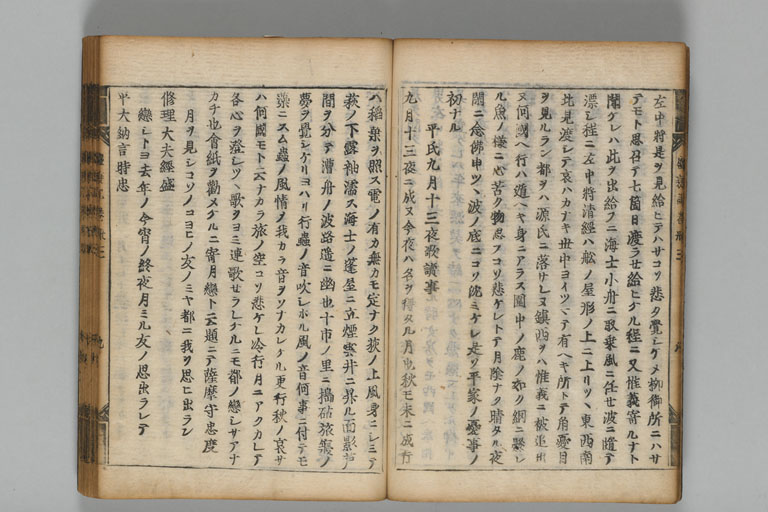 左中将是ヲ見給ヒテハサコソ悲ク覺シケメ柳御所ニハサ
テモト思召テ七箇日渡ラセ給ヒケル程ニ又惟義寄ルナト
聞ケレハ此ヲ出給フニ海士小舟ニ取乗風ニ任セ波ニ隨テ
漂シ程ニ左中將清經ハ舩ノ屋形ノ上ニ上リツヽ東西南
北見渡シテ哀ハカナキ世中ヨイツマテ有ヘキ所トテ角憂目
ヲ見ルラン都ヲハ源氏ニ落サレヌ鎮西ヲハ惟義ニ被追出
ヌ何國ヘ行ハ遁ヘキ身ニアラス圍中ノ鹿ノ如ク網ニ懸レ
ル魚ノ樣ニ心苦ク物思フコソ悲ケレトテ月陰ナク晴タル夜
閑ニ念佛申ツヽ波ノ底ニコソ沈ミケレ是ソ平家ノ憂事ノ
初ナル
平氏九月十三夜歌讀事
九月十三夜ニ成ヌ今夜ハ名ヲ得タル月也秋モ末ニ成行
ハ稲葉ヲ照ス電ノ有カ無カモ定ナク荻ノ上風身ニシミテ
萩ノ下露袖濡ス海士ノ蓬屋ニ立煙雲井ニ昇ル面影芦
間ヲ分テ漕舟ノ波路遥ニ幽也十市ノ里ニ搗砧旅寝ノ
夢ヲ覺シケリヨハリ行蟲ノ音吹シホル風ノ音何事ニ付テモ
藻ニスム蟲ノ風情ノ我カラ音ヲソナカレケル更行秋ノ哀サ
ハ何國モト云ナカラ旅ノ空コソ悲ケレ冷行月ニアクカレテ
各心ヲ澄シツヽ歌ヲヨミ連歌セラレケルニモ都ノ戀シサアナ
カチ也會紙ヲ勸メケルニ寄月戀ト云題ニテ薩摩守忠度
月ヲ見シコソノコヨヒノ友ノミヤ都ニ我ヲ思ヒ出ラン
修理大夫經盛
戀シトヨ去年ノ今宵ノ終夜月ミル友ノ思出ラレテ
平大納言時忠